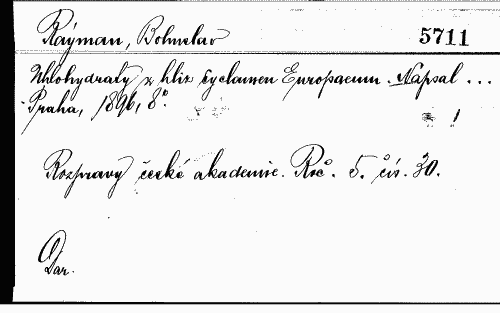 Rayman, Bohuslav 5711
Uhlohydraty z hliz Cyclamen Europaeum. Napsal ...
Praha, 1896, 8°.
1
Rozpravy české akademie. Roč. 5. čís. 30.
Dar.